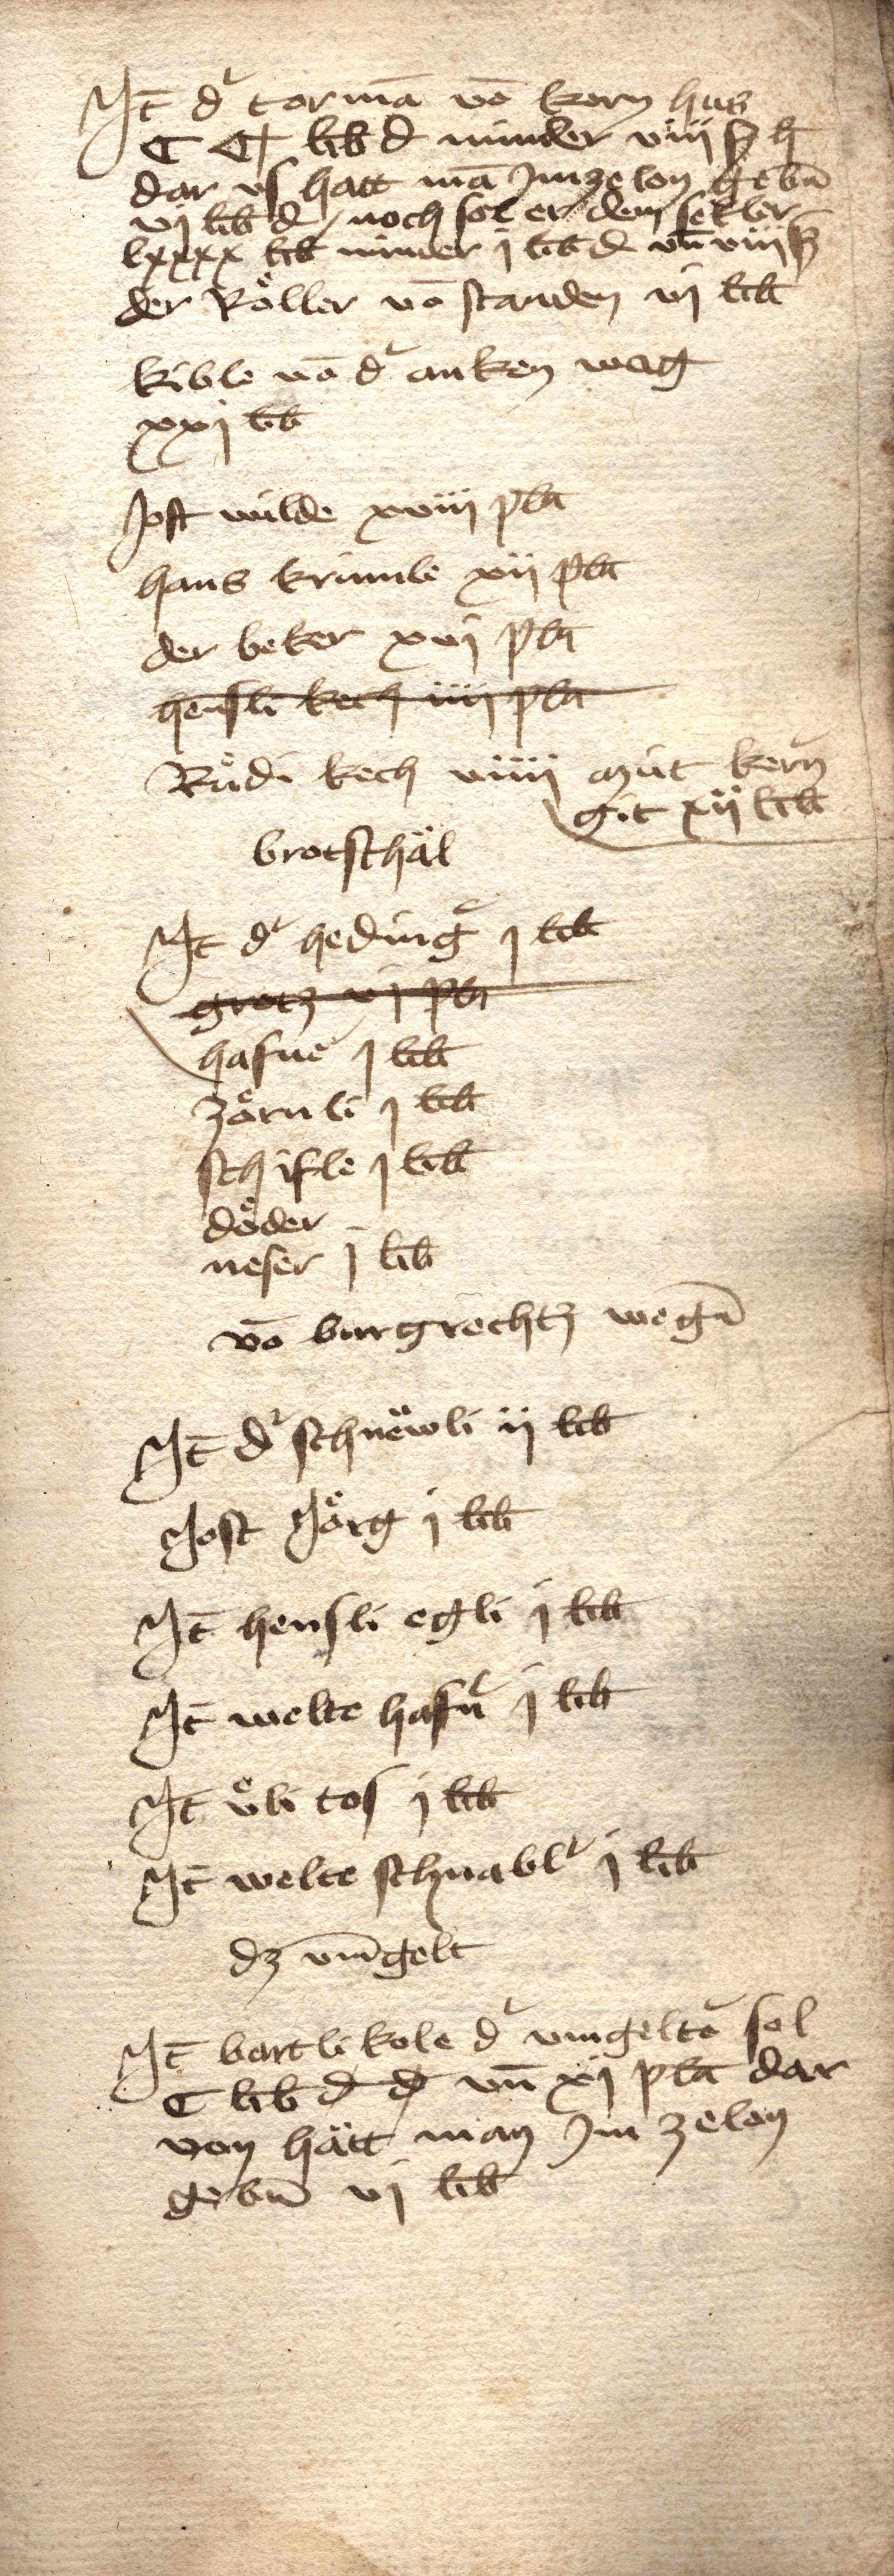 Jt̄ dʳ torma̅ vo̅ korn hus
C C lib d minder viiij ß h
dar vs hatt ma̅ Jm zelon gebn̅
vj lib d noch sol er dem sekler
lxxxx lib minder j lib d vn̅ viiij ß
der Roͤller vo̅ standen vj lib
kible vo̅ dʳ anken wag
xxj lib
Jost wilde xviij pla̅
hans krimle xij pla̅
der beker xvj pla̅
hensli kech iiij pla̅
Ruͤdi kech viiij mút kern
git xij lib
brotschäl
Jt̄ dʳ hedingʳ j lib
grotz vj pla̅
hafne j lib
zoͤrnli j lib
schifle j lib
doͤder
neser j lib
vo̅ burgrechtz wegn̅
Jt̄ dʳ schnëwli ij lib
Jost Joͤrg j lib
Jt̄ hensli egli j lib
Jt̄ welte hafnʳ j lib
Jt̄ vͤli tos j lib
Jt̄ welte schnablʳ j lib
dz vm̅gelt
Jt̄ bartli kole dʳ vmgeltʳ sol
C lib d vn̅ xj pla̅ dar
von hätt man Jm zelon
gebn̅ vj lib